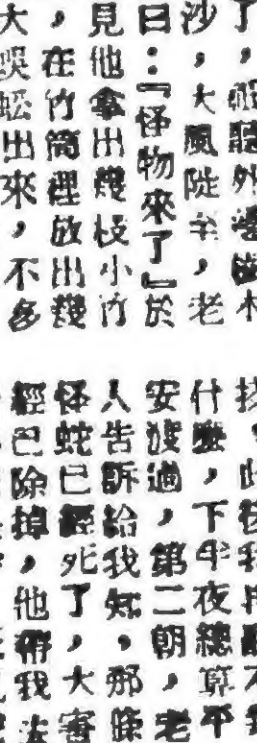 了，聽外邊樹木
沙，大風陡至，老
曰：『怪物來了』於
見他拿出幾枝小竹
，在竹筒裡放出幾
大蜈蚣出來，不多
什麼，下半夜總算平
安渡過，第二朝，老
人告訴給我知，那條
怪蛇已經死了，大害
經已除掉，他帶我去